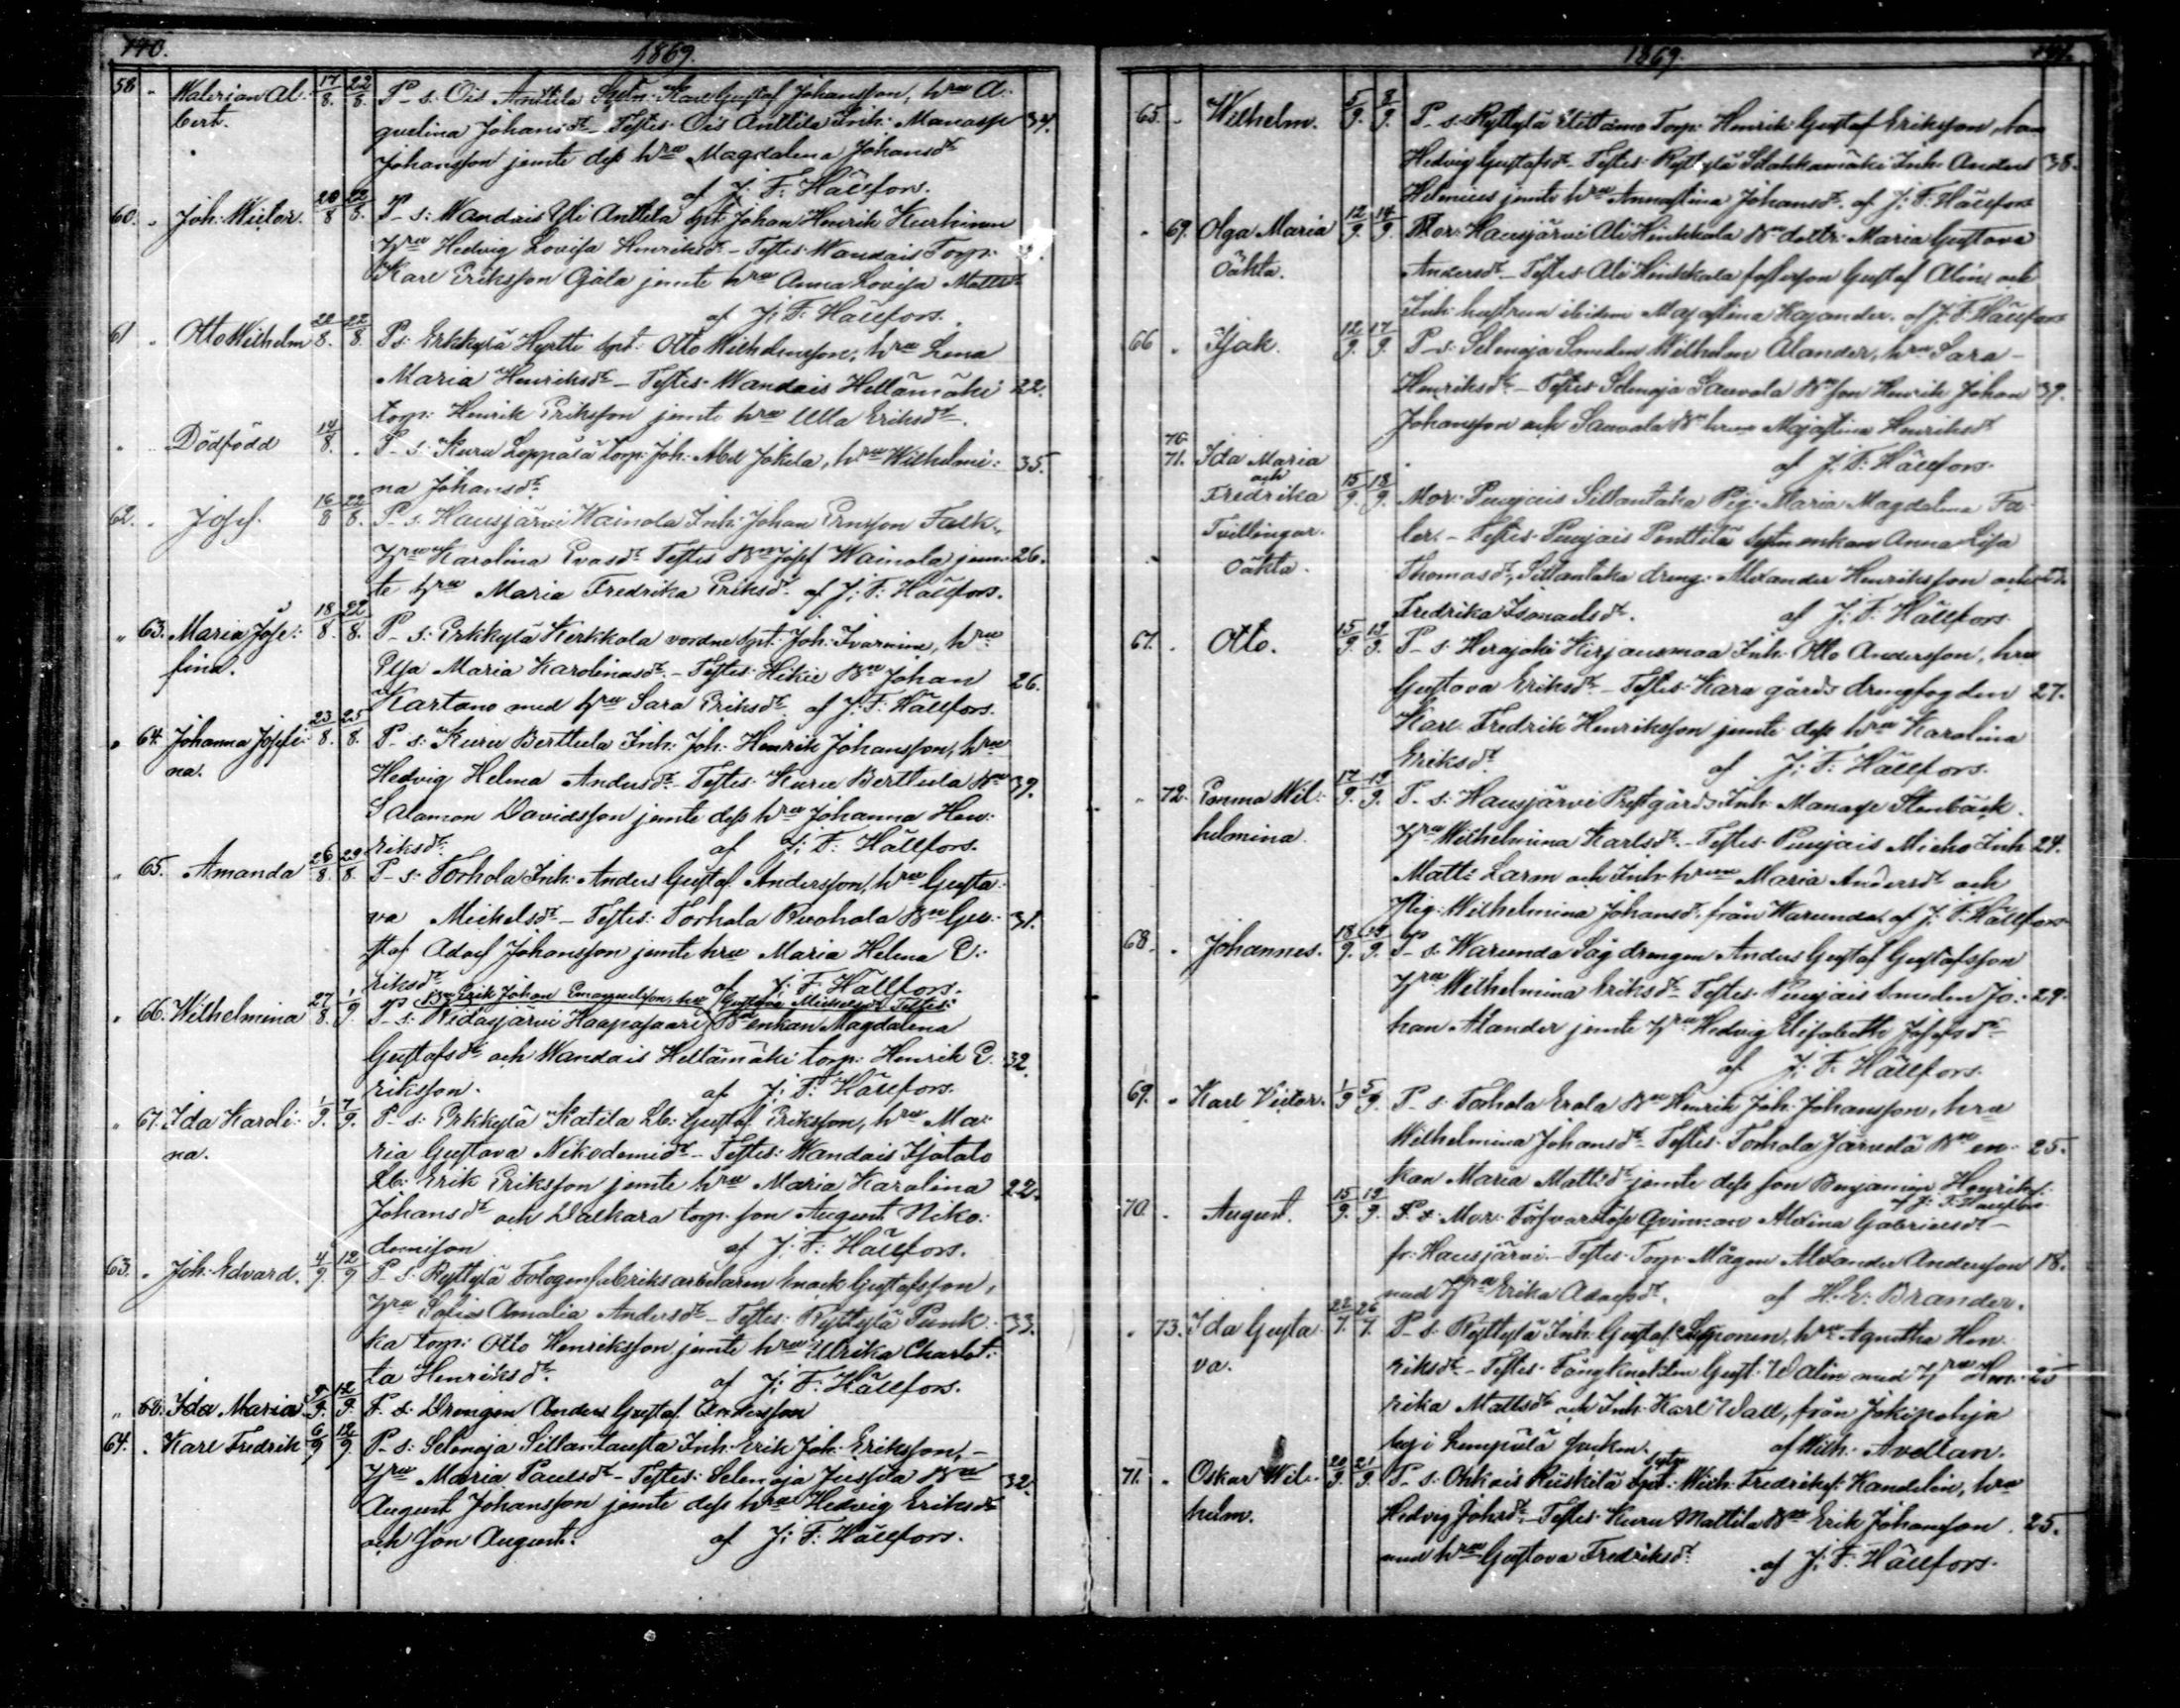 140.
1869.
58 Walerian Al: 17/8. 22/8. P_s: Ois Anttila Sytn: Karl Gustaf Johansson, hru A:
bert. quelina Johansdr_ Testes: Ois Anttila Inh: Manasse 34.
Johansson jemte dess hru Magdalena Johansdr
af J: F: Hällfors.
60. Joh: Wictor. 20/8 22/8. P_s: Wandais Yli Anttila spt: Johan Henrik Kurhinen
Hru Hedvig Lovisa Henriksdr_ Testes: Wandais Torp:
Karl Eriksson Ojala jemte hru Anna Lovisa Mattsdr
af J: F: Hällfors.
61 Otto Wilhelm 22/8. 22/8. P.s: Erkkylä Hyrtti spt: Otto Wilhelmsson, hru Lena
Maria Henriksdr_ Testes: Wandais Hellämäki 22.
torp: Henrik Eriksson jemte hru Ulla Eriksdr.
Dödfödd 14/8. P_s: Kuru Leppälä Torp: Joh: Abel Jokela, hru Wilhelmi: 35.
na Johansdr.
62. Josef. 16/8 22/8. P_s: Hausjärvi Wainola Inh: Johan Ernsson Falk,
Hru Karolina Evasdr Testes Bn Josef Wainola jem: 26.
te hru Maria Fredrika Eriksdr. af J: F: Hällfors.
63. Maria Jose: 18/8. 22/8. P_s: Erkkylä Kerkkola vordne spt: Joh: Ivarinen, hru
fina. Elsa Maria Karolinasdr._ Testes: Hikie Bn Johan 26.
Kartano med hru Sara Eriksdr. af J: F: Hällfors.
64. Johanna Josefi: 23/8. 25/8. P_s: Kuru Berttula Inh: Joh: Henrik Johansson, hru
na. Hedvig Helena Andersdr._ Testes: Kuru Berttula Bn 39.
Salamon Davidsson jemte dess hru Johanna Hen:
riksdr. af J: F: Hällfors.
65. Amanda 26/8. 29/8. P_s: Torhola Inh: Anders Gustaf Andersson, hru Gusta:
va Michelsdr_ Testes: Torhola Bn Gu: 31.
staf Adolf Johansson jemte hru Maria Helena E:
riksdr. af J: F: Hällfors.
Bn Erik Johan Emanuelsson, hru Gustava Michelsdr Testes:
66. Wilhelmina 27/8. 1/9. P_s: Ridasjärvi Haapasaari Bn enkan Magdalena
Gustafsdr och Wandais Hellämäki torp: Henrik E: 32.
riksson. af J: F: Hällfors.
67. Ida Karoli: 1/9. 7/9. P_s: Erkkylä Katila Lb: Gustaf Eriksson, hru Ma:
na. ria Gustava Nikodemidr_ Testes: Wandais Isotalo
Lb: Erik Eriksson jemte hru Maria Karolina 22.
Johansdr och Walkara torp: son August Niko:
demison af J: F: Hällfors.
63. Joh: Edvard. 4/9. 12/9 P_s: Ryttylä Fotogenfabriksarbetaren Enock Gustafsson,
Hru Sofia Amalia Andersdr_ Testes: Ryttylä Punk: 33.
ka torp: Otto Henriksson jemte hru Ulrika Charlot:
ta Henriksdr. af J: F: Hällfors.
68. Ida Maria 9/9. 12/9. P. s: Drengen Anders Gustaf Andersson
64. Karl Fredrik 6/9 12/9 P_s: Selenoja Sillanlausta Inh: Erik Joh: Eriksson,_
Hru Maria Paulsdr_ Testes: Selenoja Jussila Bn 32.
August Johansson jemte dess hru Hedvig Eriksdr
och son August. af J: F: Hällfors.
1869.
141.
65. Wilhelm. 5/9. 8/9. P_s: Ryttylä Torp: Henrik Gustaf Eriksson, hru
Hedvig Gustafsdr_ Testes: Ryttylä Inh: Anders 38.
Helenius jemte hru Annastina Johansdr. af J: F: Hällfors
69. Olga Maria 12/9. 14/9. Mor: Hausjärvi Ali Hinkkala Bn dottr: Maria Gustava
Oäkta. Andersdr_ Testes: Ali Hinkkala fosterson Gustaf Alén och
Inh: hustrun ibidem Majastina Kajander. af J: F: Hällfors
66 Isak. 12/9. 17/9. P_s: Selenoja Smeden Wilhelm Alander, hru Sara_
Henriksdr_ Testes: Selenoja Sauvola Bn son Henrik Johan 39.
Johansson och Sauvala Bn hru Majastina Henriksdr
70. af J: F: Hällfors.
71. Ida Maria
och
Fredrika 15/9. 18/9. Mor: Puujais Sillantaka Pig: Maria Magdalena Fa:
Tvillingar. ler._ Testes: Puujais Penttilä Sytn enkan Anna Lisa
Oäkta. Thomasdr, Sillantaka dreng: Alexander Henriksson och
Fredrika Ismaelsdr. af J: F: Hällfors.
67. Otto. 15/9. 19/9. P_s: Herajoki Kirjausmaa Inh: Otto Andersson, hru
Gustava Eriksdr_ Testes: Kara gårds drengfogden 27.
Karl Fredrik Henriksson jemte dess hru Karolina
Eriksdr. af J: F: Hällfors.
72. Emma Wil: 17/9. 19/9. P_s: Hausjärvi Prestgårds Inh: Manasse Stenbäck.
helmina. Hru Wilhelmina Karlsdr._ Testes: Puujais Micko Inh: 24.
Matti Larm och Inh: hru Maria Andersdr och
Pig: Wilhelmina Johansdr. från Warunda. af J: F: Hällfors
68. Johannes. 18/9. 19/9. P_s: Warunda Såg drengen Anders Gustaf Gustafsson
Hru Wilhelmina Eriksdr_ Testes: Puujais Smeden Jo: 29.
han Alander jemte Hru Hedvig Elisabeth Josefsdr
af J: F: Hällfors.
69. Karl Victor. 1/9 5/9. P_s: Torhola Erola Bn Henrik Joh: Johansson, hru
Wilhelmina Johansdr. Testes: Torhola Järvelä Bn en: 25.
kan Maria Mattsdr jemte dess son Benjamin Henriks:
af J: F: Hällfors
70. August. 15/9. 19/9. P. s: Mor: Försvarslösa Qvinnan Alexina Gabrielsdr_
fr: Hausjärvi._ Testes: Torp: Mågen Alexander Andersson 18.
med Hru Erika Adolfsdr. af H: L: Brander.
73. Ida Gusta: 22/7. 26/7. P_s: Ryttylä Inh: Gustaf Lipponen, hru Agnetha Hen:
va. riksdr_ Testes: Fångknekten Gust: Walin med Hru Hen: 25
rika Mattsdr och Inh: Karl Wall, från Jokipohja
by i Lempälä Socken. af Wilh: Avellan.
sytn
71. Oskar Wil: 20/9. 21/9. P_s: Ohkois Ruskilä spt: Wilh: Fredriks: Kandelin, hru
helm. Hedvig Johsdr_ Testes: Kuru Mattila Bn Erik Johansson 25.
med hru Gustava Fredriksdr. af J: F: Hällfors.